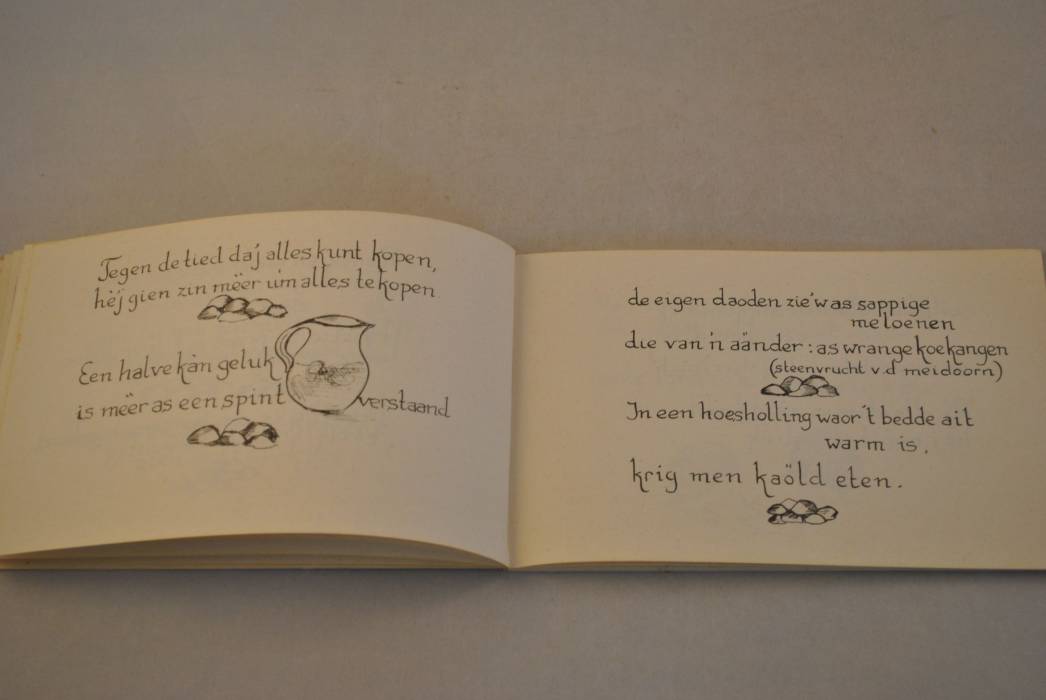 Tegen de tied daj alles kunt kopen,
hèj gien zin mëer üm alles te kopen.
Een halve kàn geluk
is mëer as een spint verstaand
de eigen daoden zie'w as sappige
meloenen
die van 'n aänder: as wrange koekangen
(steenvrucht v.d meidoorn)
In een hoesholling waor 't bedde ait
warm is,
krig men kaöld eten.